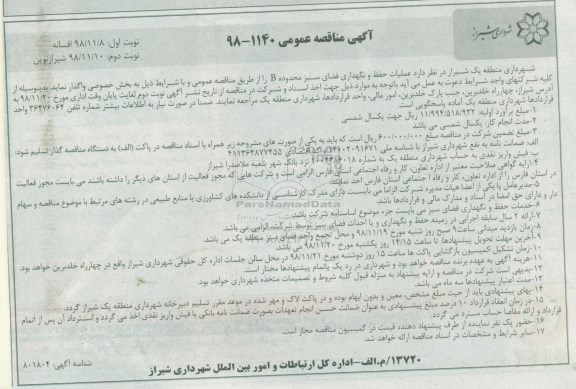 شهرداری شیراز
آگهی مناقصه عمومی ۱۱۴۰-۹۸
نوبت اول: ۹۸/۱۱/۸ افسانه
نوبت دوم: ۹۸/۱۱/۱۰ شیرازنوین
شهرداری منطقه یک شیراز در نظر دارد عملیات حفظ و نگهداری فضای سبز محدوده B را از طریق مناقصه عمومی و با شرایط ذیل به بخش خصوصی واگذار نماید. بدینوسیله از
کلیه شرکتهای واجد شرایط دعوت به عمل می آید باتوجه به موارد ذیل جهت اخذ اسناد و شرکت در مناقصه از تاریخ نشر آگهی نوبت دوم لغایت پایان وقت اداری مورخ ۹۸/۱۱/۲۰ به
آدرس شیراز، چهارراه خلدبرین، جنب پارک خلدبرین، امور مالی، واحد قراردادهای شهرداری منطقه یک مراجعه نمایند. ضمنا در صورت نیاز به اطلاعات بیشتر شماره تلفن ۳۶۴۷۶۰۶۴ واحد
قراردادها شهرداری منطقه یک آماده پاسخگویی است.
۱-مبلغ برآورد اولیه: ۱۱/۹۹۴/۵۱۸/۹۳۲ ریال جهت یکسال شمسی
۲-مدت انجام کار: یکسال شمسی می باشد
۳-مبلغ تضمین شرکت در مناقصه مبلغ ۶۰۰/۰۰۰/۰۰۰ ریال است که باید به یکی از صورت های مشروحه زیر همراه با اسناد مناقصه در پاکت (الف) به دستگاه مناقصه گذار تسلیم شود:
الف: ضمانت نامه به نفع شهرداری شیراز با شناسه ملی
ب: فیش واریز نقدی به حساب شهرداری منطقه یک به شماره نزد بانک شهر شعبه ملاصدرا شیراز
۴-ارایه گواهی صلاحیت معتبر از اداره تعاون، کار و رفاه اجتماعی استان فارس الزامی است و شرکت هایی که مجوز فعالیت از استان های دیگر را داشته باشند می بایست مجوز فعالیت
در استان فارس را از اداره تعاون، کار و رفاه اجتماعی استان فارس اخذ نمایند.
۵-مدیرعامل یا یکی از اعضا هیات مدیره شرکت الزاما می بایست دارای مدرک کارشناسی از دانشکده های کشاورزی یا منابع طبیعی در رشته های مرتبط با موضوع مناقصه و سهام
دار و دارای حق امضا در اسناد و مدارک مالی و قراردادها باشد.
۶-خدمات حفظ و نگهداری فضای سبز می بایست جزء موضوع اساسنامه شرکت باشد.
۷-ارائه ۲ سال سابقه اجرایی در زمینه حفظ و نگهداری و یا احداث فضای سبز توسط شرکت، الزامی می باشد.
۸-زمان بازدید میدانی ساعت ۹ صبح روز شنبه مورخ ۹۸/۱۱/۱۹ و محل تجمع واحد فضای سبز منطقه یک می باشد.
۹-آخرین مهلت تحویل پیشنهادها: تا ساعت ۱۴/۱۵ روز یکشنبه مورخ ۹۸/۱۱/۲۰ می باشد.
۱۰-زمان تشکیل کمیسیون بازگشایی پاکت ها ساعت ۱۵ روز دوشنبه مورخ ۹۸/۱۱/۲۱ در محل سالن جلسات اداره کل حقوقی شهرداری شیراز واقع در چهارراه خلدبرین خواهد بود.
۱۱-هزینه آگهی به عهده برنده مناقصه خواهد بود و شهرداری در رد یک یاتمام پیشنهادها مختار است.
۱۲-بدیهی است شرکت در مناقصه و ارایه پیشنهاد به منزله قبول کلیه شروط و تصمیمات متخذه شهرداری خواهد بود.
۱۳-مدت اعتبار پیشنهادها سه ماه می باشد.
۱۴-بهای پیشنهادی باید از حیث مبلغ مشخص، معین و بدون ابهام بوده و در پاکت لاک و مهر شده در موعد مقرر تسلیم دبیرخانه شهرداری منطقه یک شیراز گردد.
۱۵-در زمان انعقاد قرارداد ۱۰ درصد مبلغ پیشنهادی به عنوان ضمانت حسن انجام تعهدات بصورت ضمانت نامه بانکی یا فیش واریز نقدی اخذ می گردد و استرداد آن پس از اتمام
قرارداد و ارائه مفاصا حساب مسترد می گردد.
۱۶-حضور یک نفر نماینده از طرف پیشنهاد دهنده قیمت در کمیسیون مناقصه مجاز است.
۱۷-سایر شرایط و مشخصات در اسناد مناقصه ارائه خواهد شد.
۱۳۷۲۰/م.الف-اداره کل ارتباطات و امور بین الملل شهرداری شیراز
شناسه آگهی: ۸۰۱۸۰۴